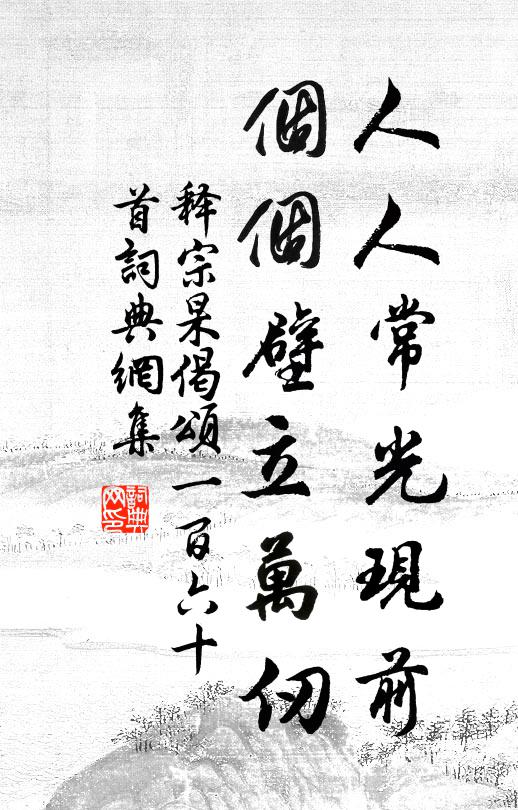 人人常光現前
個個壁立萬仞
释宗杲偈頌一百六十
首詞典網集
詞典網印